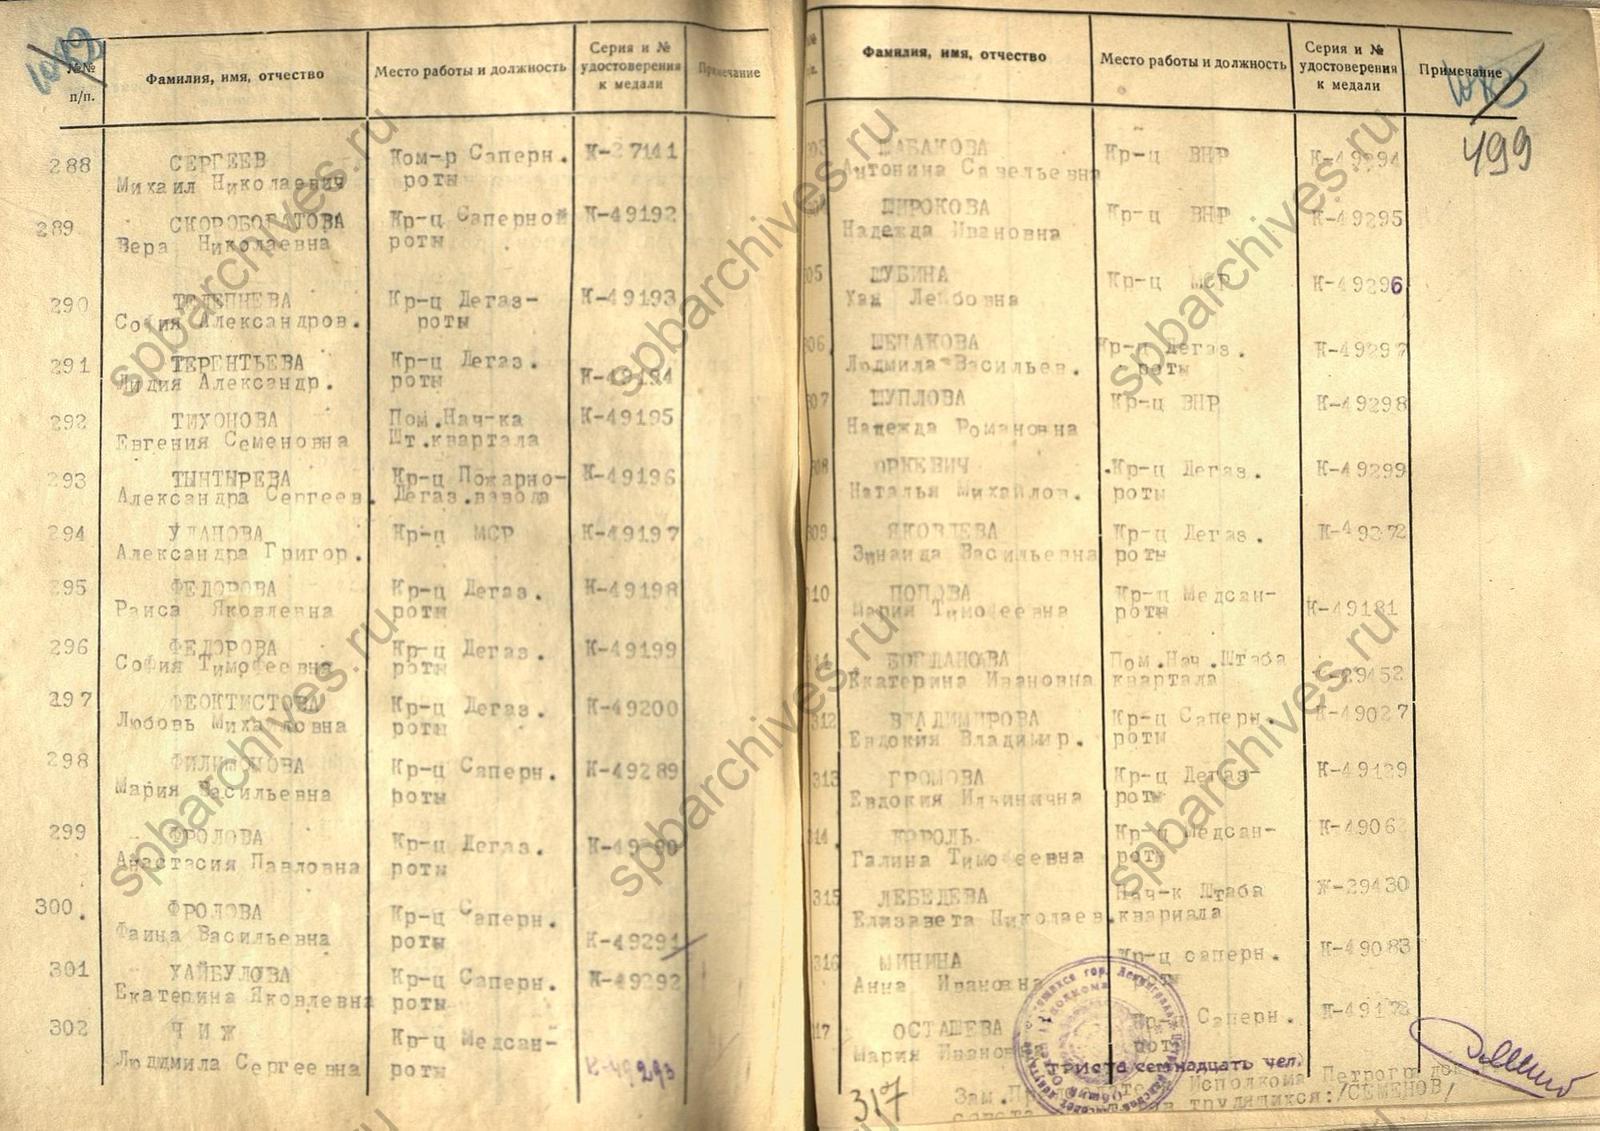 №№ п/п.
Фамилия, имя, отчество
Место работы и должность
Серия и № удостоверения к медали
Примечание
288 СЕРГЕЕВ Ком-р Саперн. К-37141
Михаил Николаевич роты
289 СКОРОБОГАТОВА Кр-ц Саперной К-49192
Вера Николаевна роты
290 ТЕЛЕПНЕВА Кр-ц Дегаз- К-49193
София Александров. роты
291 ТЕРЕНТЬЕВА Кр-ц Дегаз.
Лидия Александр. роты К-49194
292 ТИХОНОВА Пом.Нач-ка К-49195
Евгения Семеновна Шт.квартала
293 ТЫНТЫРЕВА Кр-ц Пожарно- К-49196
Александра Сергеев. Дегаз.взвода
294 УЛАНОВА Кр-ц МСР К-49197
Александра Григор.
295 ФЕДОРОВА Кр-ц Дегаз. К-49198
Раиса Яковлевна роты
296 ФЕДОРОВА Кр-ц Дегаз. К-49199
София Тимофеевна роты
297 ФЕОКТИСТОВА Кр-ц Дегаз. К-49200
Любовь Михайловна роты
298 ФИЛИМОНОВА Кр-ц Саперн. К-49289
Мария Васильевна роты
299 ФРОЛОВА Кр-ц Дегаз. К-49290
Анастасия Павловна роты
300. ФРОЛОВА Кр-ц Саперн.
Фаина Васильевна роты К-49291
301 ХАЙБУЛОВА Кр-ц Саперн. К-49292
Екатерина Яковлевна роты
302 ЧИЖ Кр-ц Медсан-
Людмила Сергеевна роты К-49293
Фамилия, имя, отчество
Место работы и должность
Серия и № удостоверения к медали
Примечание
499
ШАБАКОВА Кр-ц ВНР К-49294
Антонина Савельевна
ШИРОКОВА Кр-ц ВНР К-49295
Надежда Ивановна
305 ШУБИНА Кр-ц МСР К-49296
Хая Лейбовна
306 ШЕПАКОВА Кр-ц Дегаз. К-49297
Людмила Васильев. роты
307 ШУПЛОВА Кр-ц ВНР К-49298
Надежда Романовна
308 ЮРКЕВИЧ Кр-ц Дегаз. К-49299
Наталья Михайлов. роты
309 ЯКОВЛЕВА Кр-ц Дегаз. К-49272
Зинаида Васильевна роты
310 ПОПОВА Кр-ц Медсан-
Мария Тимофеевна роты К-49181
311 БОГДАНОВА Пом.Нач.Штаба
Екатерина Ивановна квартала
312 ВЛАДИМИРОВА Кр-ц Саперн. К-49027
Евдокия Владимир. роты
313 ГРОМОВА Кр-ц Дегаз- К-49129
Евдокия Ильинична роты
314 КОРОЛЬ Кр-ц Медсан-
Галина Тимофеевна роты
315 ЛЕБЕДЕВА Нач-к Штаба Ж-29430
Елизавета Николаев. квариала
316 МИНИНА Кр-ц саперн. К-49083
Анна Ивановна роты
317 ОСТАШЕВА Кр-ц Саперн.
Мария Ивановна роты
триста семнадцать чел.
317
Исполкома Петроград
трудящихся:/СЕМЕНОВ/
spbarchives.ru
spbarchives.ru
spbarchives.ru
spbarchives.ru
spbarchives.ru
spbarchives.ru